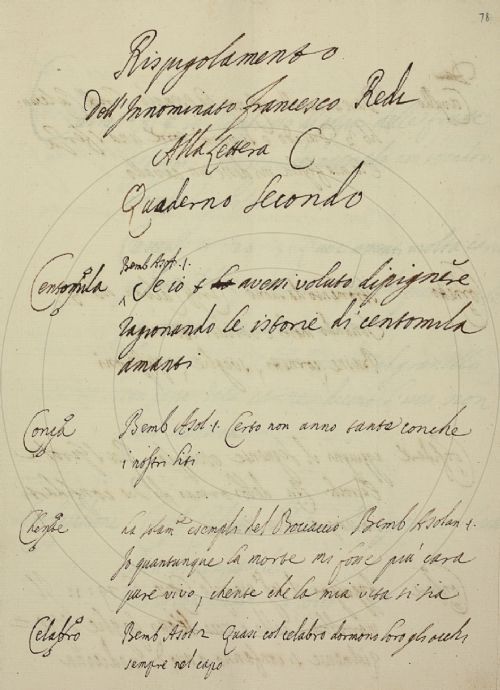 78.
Rispigolamento
Dell'Innominato Francesco Redi
Alla Lettera C
Quaderno Secondo
Bemb Asol. 1.
Centomila Se io avessi voluto dipignere
ragionando le istorie di centomila
amanti
Conca Bemb Asol 1. Certo non anno tante conche
i nostri liti
Chente esempli del Boccaccio. Bemb Asolan 1.
Io quantunque la morte mi fosse più cara
pure vivo, chente che la mia vita si sia
Celabro Bemb Asol 2 Quasi col celabro dormono loro gli occhi
sempre nel capo